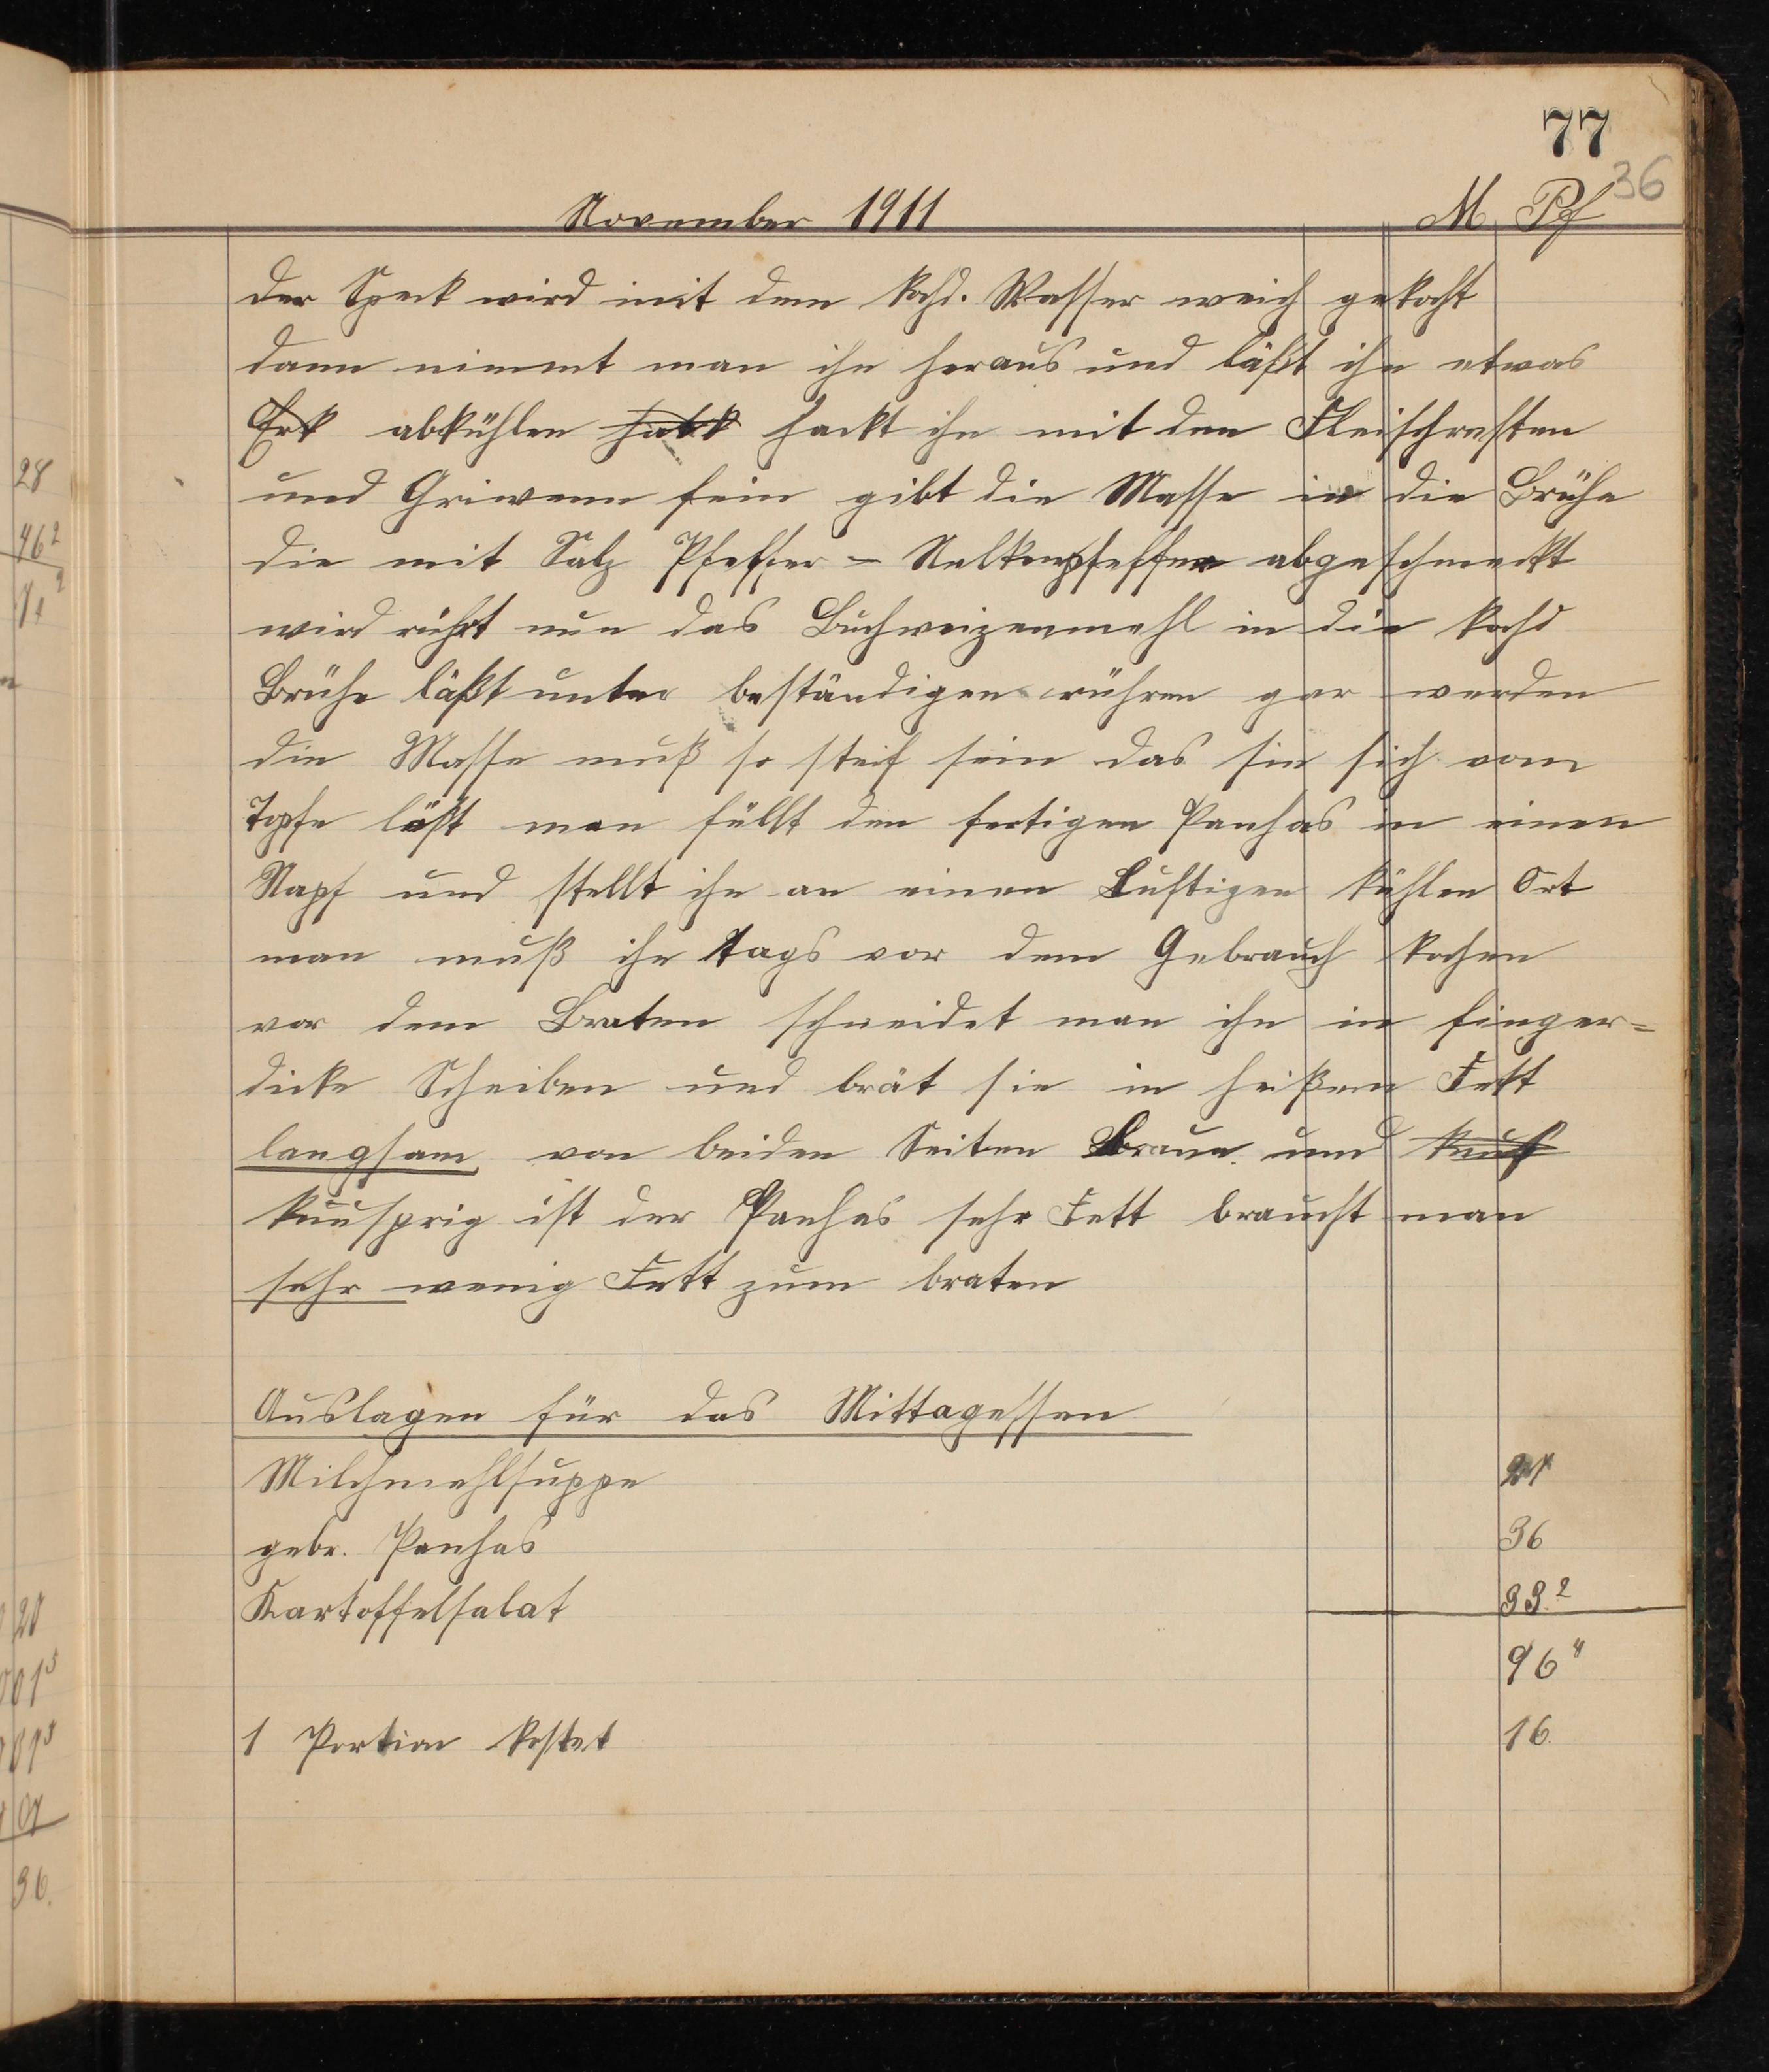 77
36
November 1911 M Pf
der Speck wird mit dem kochd. Wasser weich gekocht
dann nimmt man ihn heraus und läßt ihn etwas
abkühlen hackt ihn mit den Fleischresten
und Griwenn fein gibt die Masse in die Brühe
die mit Salz Pfeffer - Nelkenpfeffer abgeschmeckt
wird rührt nun das Buchweizenmehl in die kochd
Brühe läßt unter beständigen rühren gar werden
die Masse muß so steif sein das sie sich vom
Topfe löst man füllt den fertigen Panhas in einen
Napf und stellt ihn an einen Luftigen kühlen Ort
man muß ihn tags vor dem Gebrauch kochen
vor dem Braten schneidet man ihn in finger=
dicke Scheiben und brät sie in heißem Fett
langsam von beiden Seiten braun und
knusprig ist der Panhas sehr Fett braucht man
sehr wenig Fett zum braten
Auslagen für das Mittagessen
Milchmehlsuppe
gebr. Panhas 36
Kartoffelsalat 33²
96⁴
1 Portion kostet 16.
28
46²
20
36.